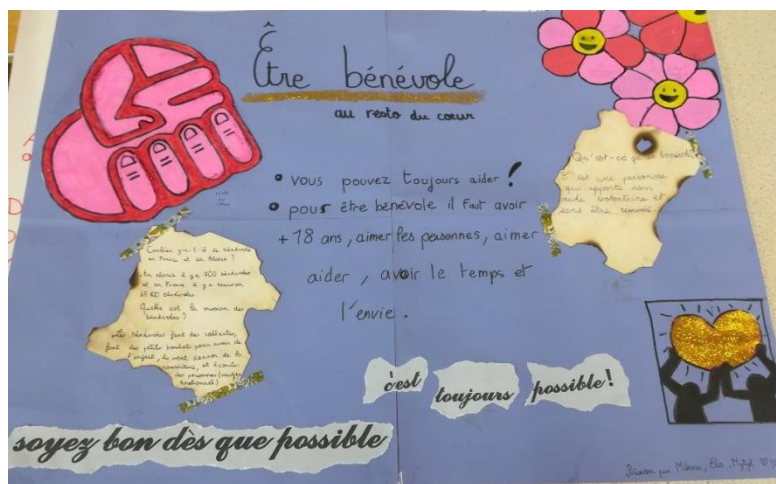 Être bénévole
au resto du cœur
• vous pouvez toujours aider !
• pour être bénévole il faut avoir
+ 18 ans, aimer les personnes, aimer
aider, avoir le temps et
l'envie.
Qu'est-ce qu'un bénévole,
C'est une personne
qui apporte son
aide volontaire et
sans être rémunéré.
Combien y a-t-il de bénévoles
en France et en Alsace ?
En alsace il y a 700 bénévoles
et en France il y a environ
bénévoles.
Quelle est la mission des
bénévoles ?
Les bénévoles font des collectes,
font des petits boulots pour avoir de
l'argent, ils vont donner de la
nourriture, et
des personnes
c'est
toujours
possible!
soyez bon dès que possible
par